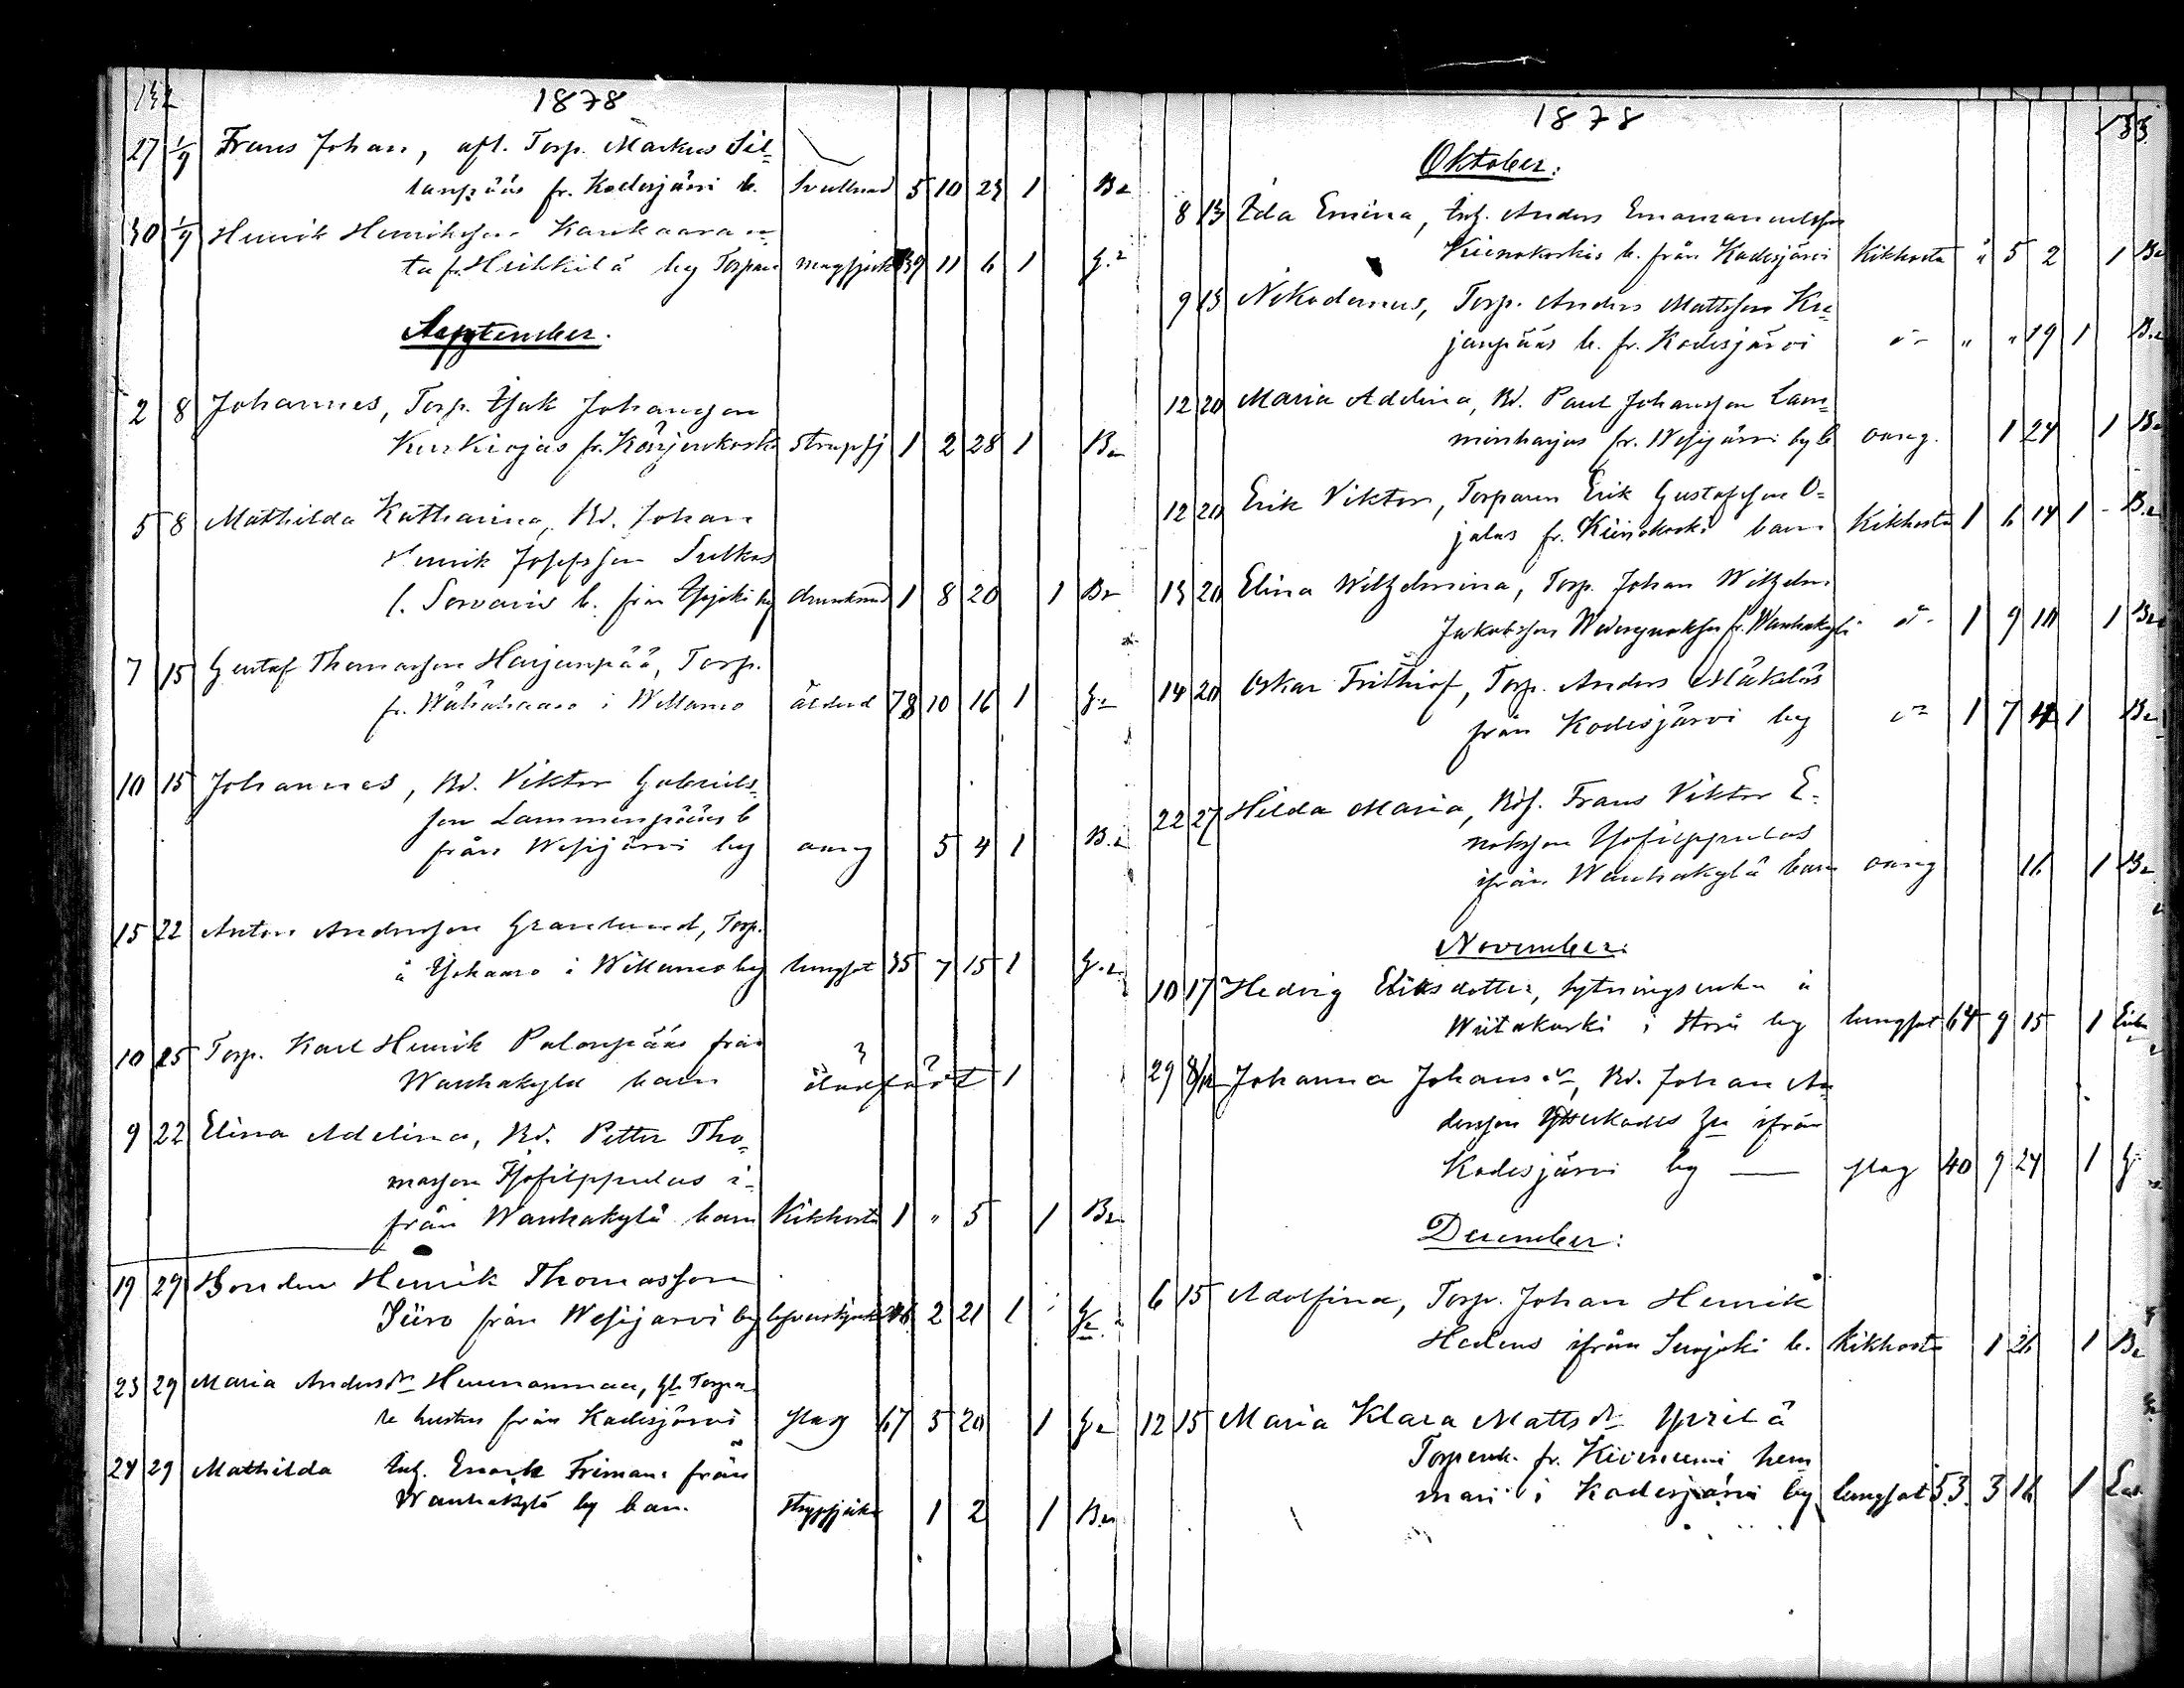 132
1878
27 1/9 Frans Johan, afl. Torp. Markus Sil-
lanpääs fr. Kodesjärvi b. 5 10 23 1 Bn
30 1/9 Henrik Henriksson Kankaaran-
ta fr. Heikkilä by Torpare magsjuk 39 11 6 1 G.
September.
2 8 Johannes, Torp. Isak Johansson
Kurkiojas fr. Kärjenkoski Strupsj 1 2 28 1 Bn
5 8 Mathilda Katharina, Bd. Johan
Henrik Josefsson
l. Sorvaris b. från by drunknad 1 8 20 1 Bn
7 15 Gustaf Thomasson Harjunpää, Torp.
fr. Wähähaaro i Willamo ålderd 78 10 16 1 G
10 15 Johannes, Bd. Viktor Gabriels-
son Lammenpääs b
från Wesijärvi by oang 5 4 1 Bn
15 22 Anton Andersson Granlund, Torp.
å i Willamo by lungsot 35 7 15 1 G.
10 25 Torp. Karl Henrik Palonpääs från
Wanhakylä barn ödödfödt 1
9 22 Elina Adelina, Bd. Petter Tho-
masson Isofilppulas i-
från Wanhakylä barn Kikhosta 1 " 5 1 Bn
19 29 Bonden Henrik Thomasson
Siiro från Wesijärvi by lefversjuk 46 2 21 1 G
23 29 Maria Andersdr Hannanmaa, Torpa-
re hustru från Kadesjärvi slag 67 5 20 1 G
24 29 Mathilda Inh. Enok Frimans från
Wanhakylä by barn Strypsjuka 1 2 1 Bn
1878
133
Oktober:
8 13 Ida Emina, Inh. Anders Emanuelsson
Kienokoskis b. från Kadesjärvi Kikhosta " 5 2 1 Bn
9 13 Nikodemus, Torp. Anders Mattsson Ku-
janpääs b. fr. Kodesjärvi " " 19 1 Bn
12 20 Maria Adelina, Bd. Paul Johansson Lam-
minharjus fr. Wesijärvi by b oang. 1 24 1 Bn
12 20 Erik Viktor, Torparen Erik Gustafsson O-
jalas fr. Kienokoski barn Kikhosta 1 6 14 1 Bn
13 20 Elina Wilhelmina, Torp. Johan Wilhelm
Jakobsson fr. Wanhakylä 1 9 10 1 Bn
14 20 Oskar Frithiof, Torp. Anders Mäkeläs
från Kodesjärvi by 1 7 4 1 Bn
22 27 Hilda Maria, Bds. Frans Viktor E-
noksson Isofilppulas
ifrån Wanhakylä barn oang 16 1 Bn
November:
10 17 Hedvig Eriksdotter, Sytningsenka å
Wiitakoski i Storå by lungsot 64 9 15 1 Enk
29 8/12 Johanna Johansdr, Bd. Johan An-
dersson hu ifrån
Kodesjärvi by — slag 40 9 24 1 G
December:
6 15 Adolfina, Torp. Johan Henrik
Hedens ifrån Suojoki b. Kikhosta 1 26 1 Bn
12 15 Maria Klara Mattsdr Yrilä
Torpenk. fr. Kiviniemi hem-
man i Kadesjärvi by lungsot 53 3 16 1 Enk